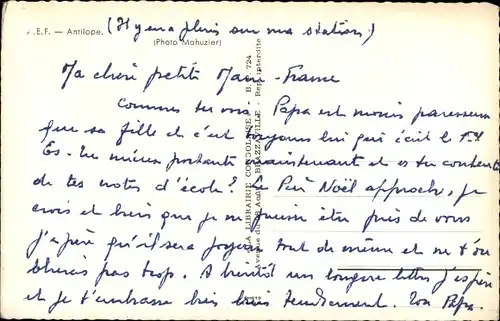 .E.F. — Antilope. (Il y en a plein sur ma station!)
(Photo Mahuzier)
Ma chère petite Marie-France
Comme tu vois Papa est moins paresseux
que sa fille et c'est toujours lui qui écrit le 1er
Es-tu mieux portante maintenant et es-tu contente
de tes notes d'école? Le Père Noël approche, je
crois et bien que je ne puisse être près de vous
j'espère qu'il sera joyeux tout de même et ne t'ou
bliera pas trop. A bientôt une longue lettre j'espère
et je t'embrasse bien bien tendrement. Ton Papa.
A LA LIBRAIRIE CONGOLAISE — B. P. 724
Avenue du 28 Août — BRAZZAVILLE - Rep. interdite